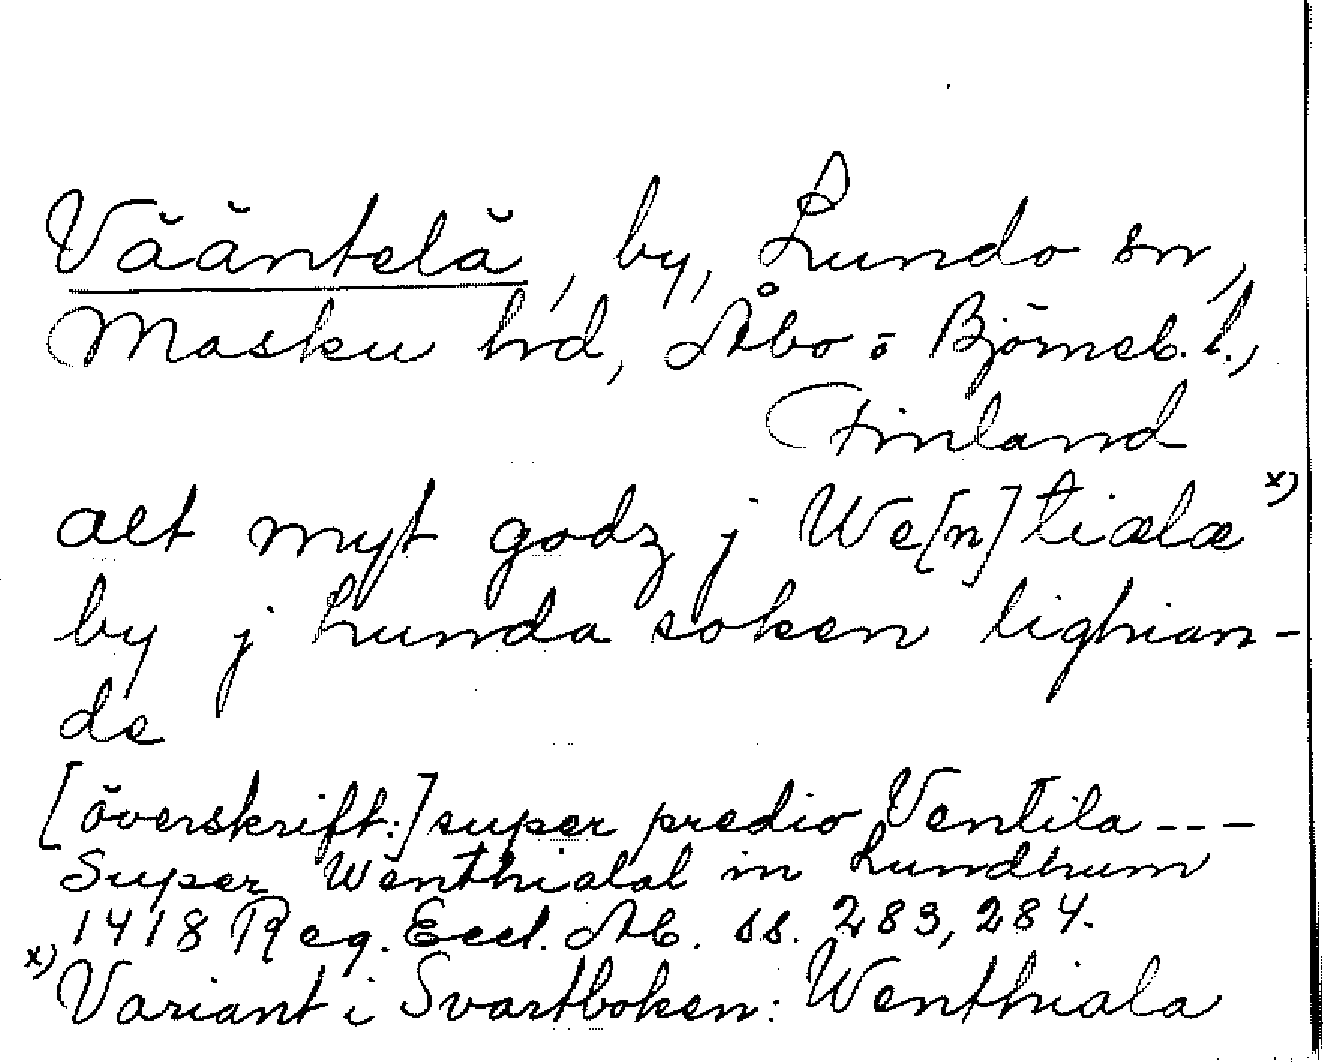 Vääntelä, by, Lundo sn,
Masku hd, Åbo o Björneb. l.,
Finland
alt myt godz j We[n]tiælæ x)
by j Lunda soken lighian-
de
[överskrift:] super predio Ventila ---
Super Wenthialal in Lundhum
1418 Reg. Eccl. Ab. ss. 283, 284.
x) Variant i Svartboken: Wenthiala